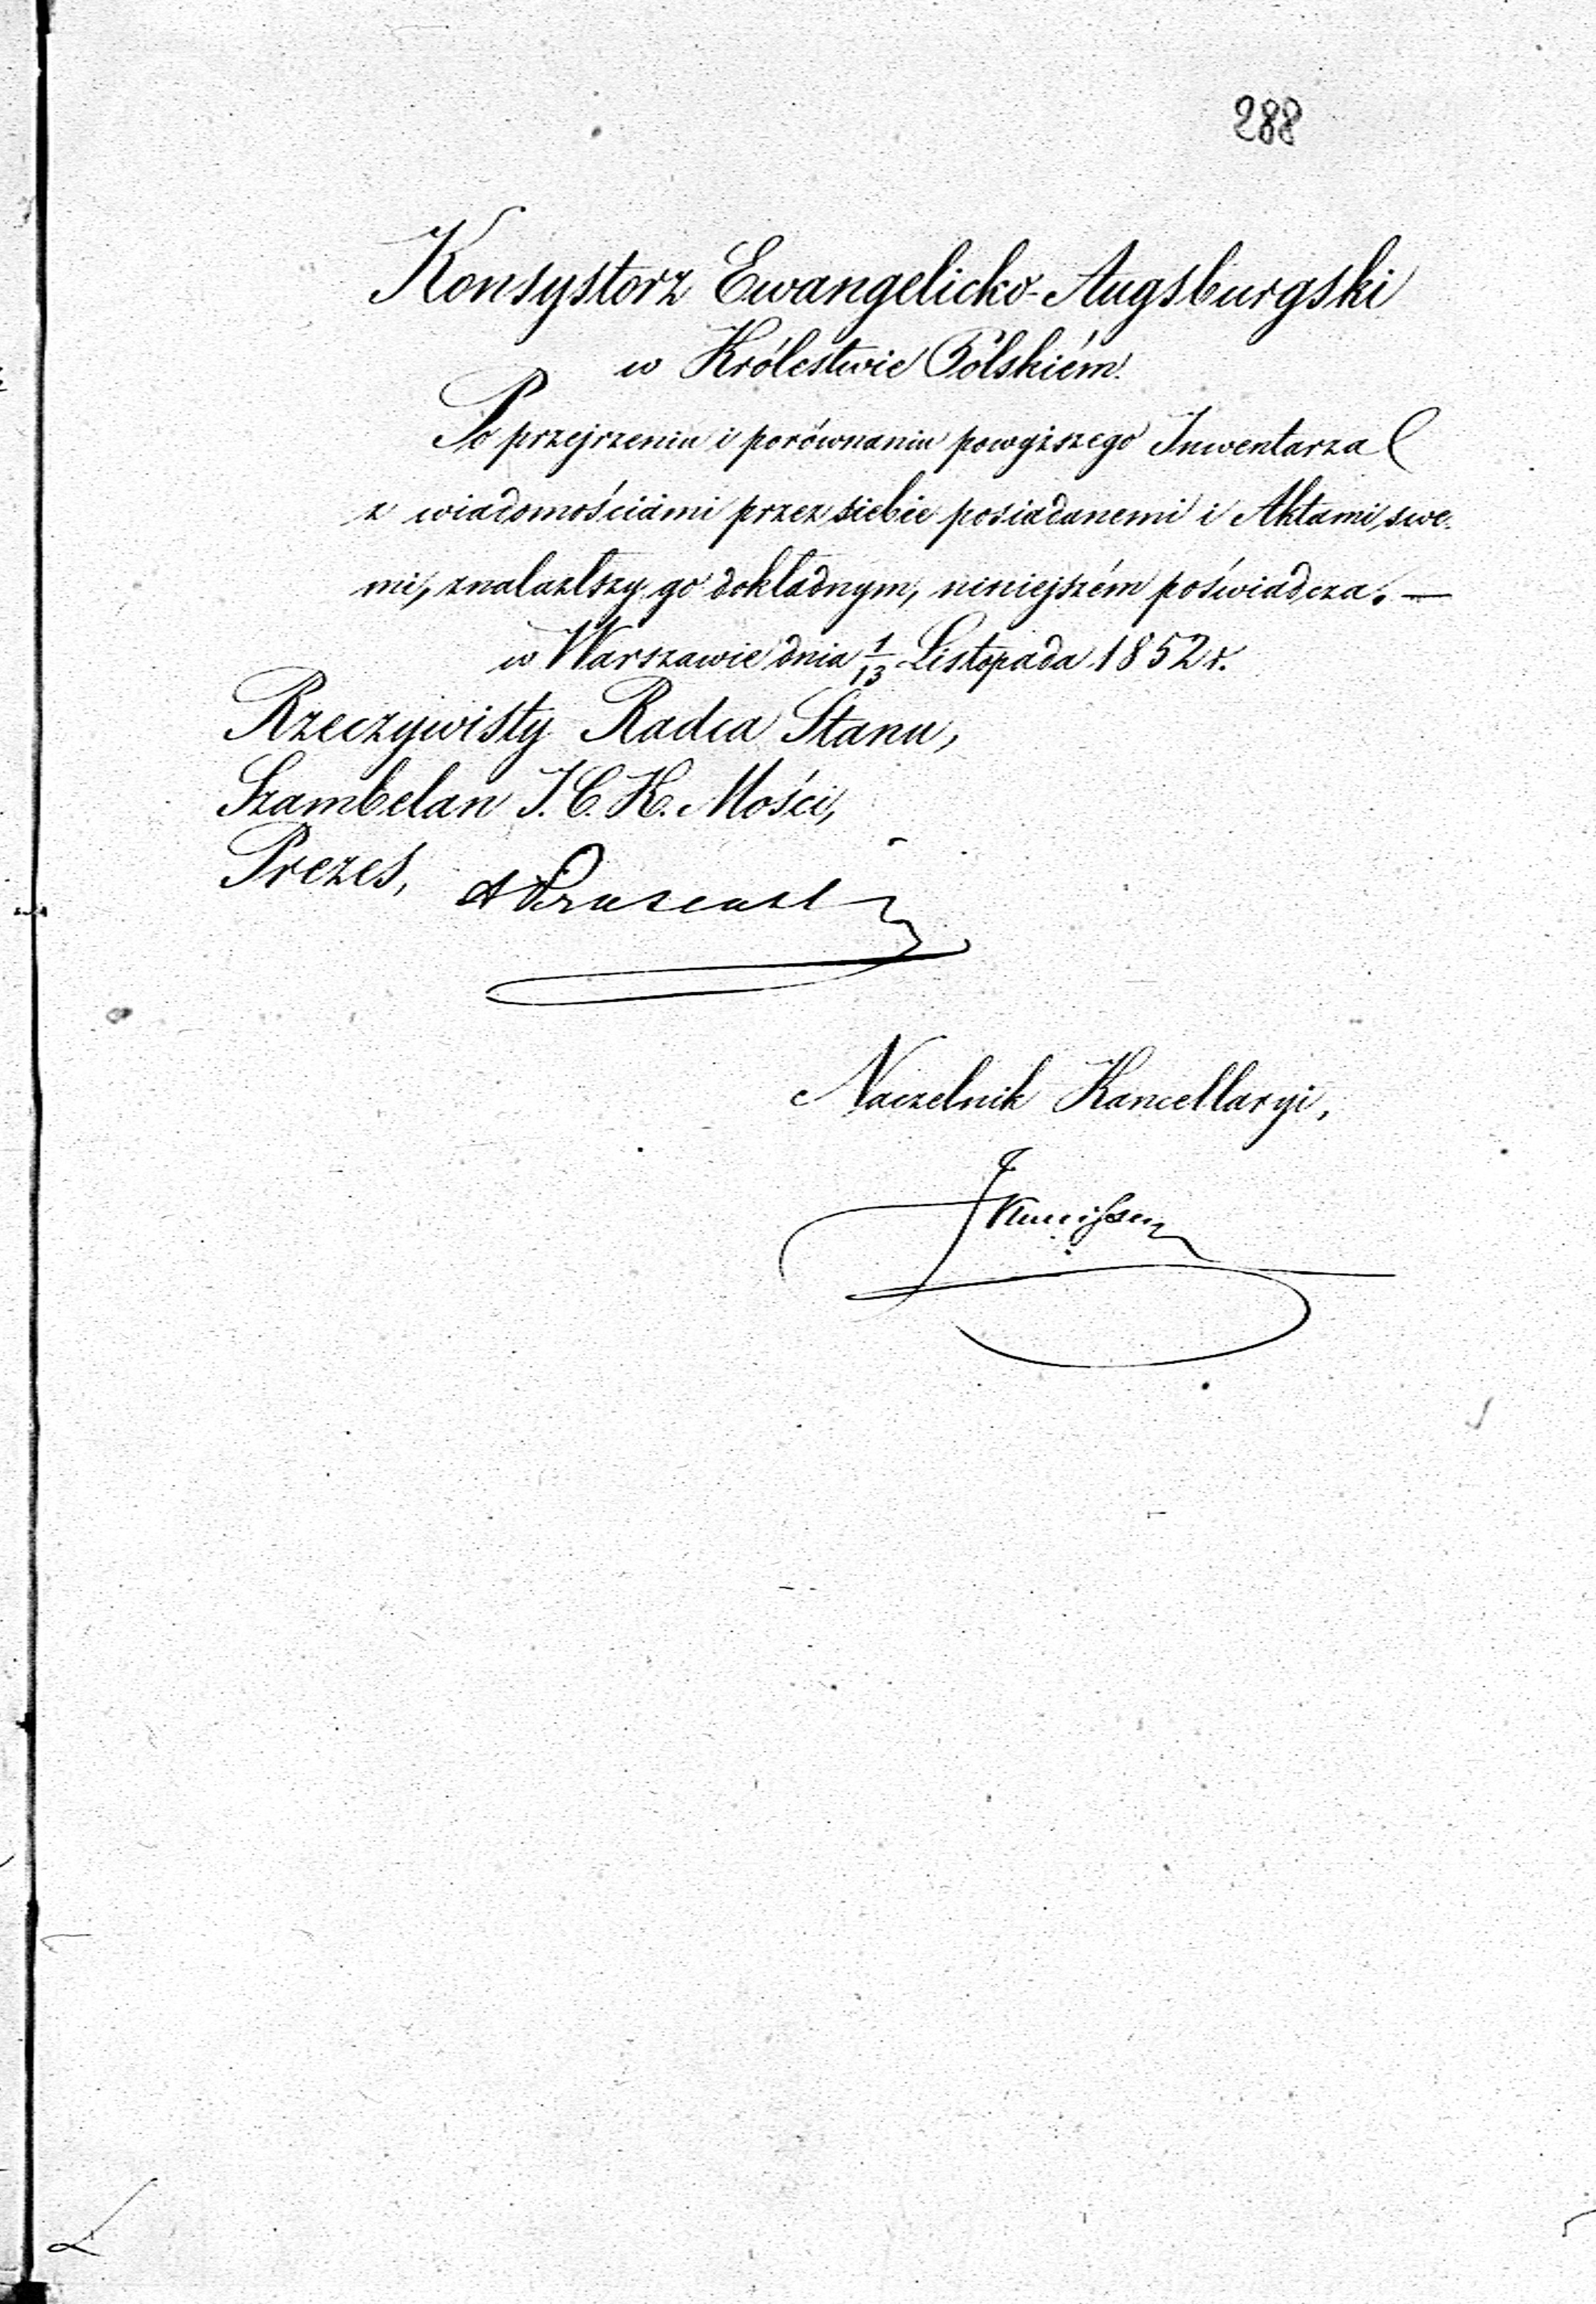 288
Konsystorz Ewangelicko-Augsburgski
w Królestwie Polskiém.
Po przejrzeniu i porównaniu powyższego Inwentarza
z wiadomościami przez siebie posiadanemi i Aktami swe-
mi, znalazłszy go dokładnym, niniejszém poświadcza. —
w Warszawie dnia 1/13 Listopada 1852 r.
Rzeczywisty Radca Stanu,
Szambelan J. C. K. Mości,
Prezes,
Naczelnik Kancellaryi,